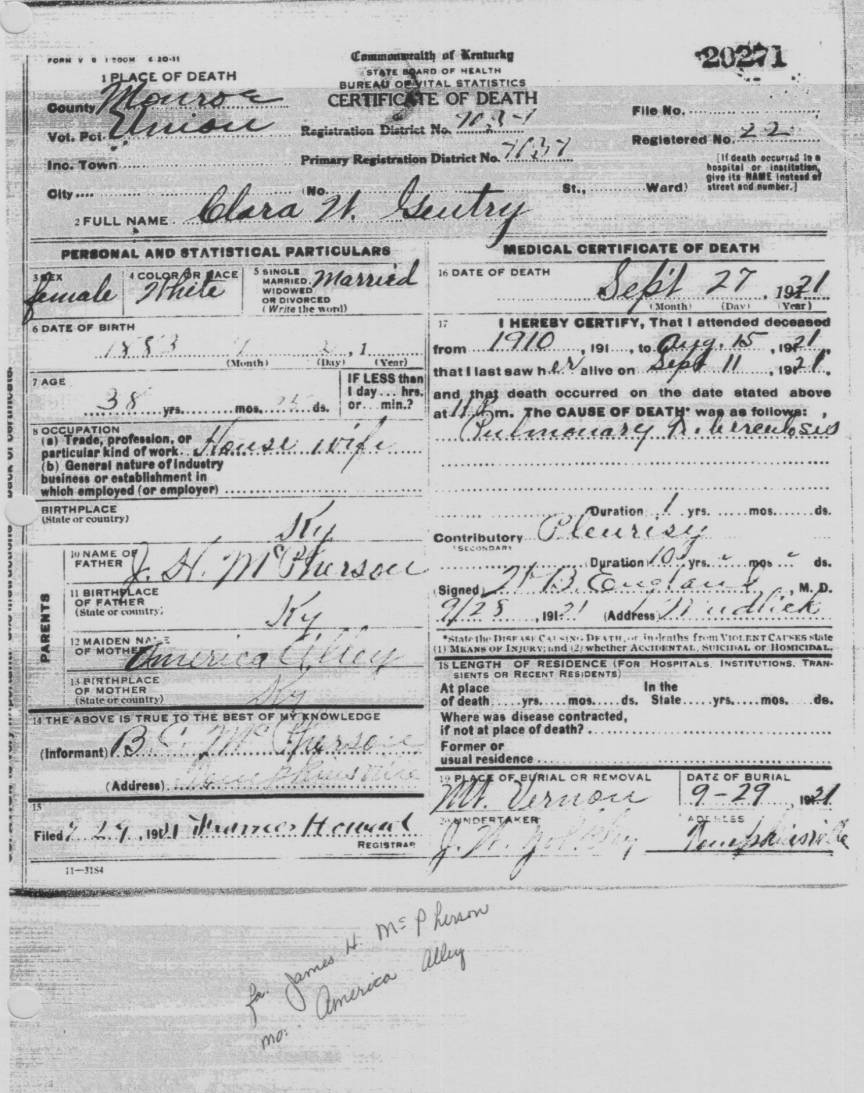 FORM V S 1 100M 6-20-11
Commonwealth of Kentucky
STATE BOARD OF HEALTH
BUREAU OF VITAL STATISTICS
CERTIFICATE OF DEATH
20271
1 PLACE OF DEATH
County Monroe
Vot. Pct. Union
Inc. Town
City
Registration District No.
Primary Registration District No.
(No. St., Ward)
File No.
Registered No. 22
[If death occurred in a hospital or institution, give its NAME instead of street and number.]
2 FULL NAME Clara W. Gentry
PERSONAL AND STATISTICAL PARTICULARS
3 SEX female
4 COLOR OR RACE White
5 SINGLE MARRIED, WIDOWED OR DIVORCED (Write the word) Married
6 DATE OF BIRTH
1883 , 1
(Month) (Day) (Year)
7 AGE
38 yrs. mos. ds.
IF LESS than 1 day ... hrs. or ... min.?
8 OCCUPATION
(a) Trade, profession, or particular kind of work House wife
(b) General nature of industry business or establishment in which employed (or employer)
BIRTHPLACE
(State or country) Ky
PARENTS
10 NAME OF FATHER J. H. McPherson
11 BIRTHPLACE OF FATHER (State or country) Ky
12 MAIDEN NAME OF MOTHER America Alley
13 BIRTHPLACE OF MOTHER (State or country) Ky
14 THE ABOVE IS TRUE TO THE BEST OF MY KNOWLEDGE
(Informant) B. C. McPherson
(Address) Tompkinsville
15
Filed 9 29, 1921 Howard
REGISTRAR
11—3184
MEDICAL CERTIFICATE OF DEATH
16 DATE OF DEATH
Sept 27, 1921
(Month) (Day) (Year)
17 I HEREBY CERTIFY, That I attended deceased
from 1910, 191 , to Aug. 15, 1921
that I last saw her alive on Sept 11, 1921
and that death occurred on the date stated above
at m. The CAUSE OF DEATH* was as follows:
Pulmonary Tuberculosis
Duration 1 yrs. mos. ds.
Contributory Pleurisy
SECONDARY
Duration 10 yrs. " mos " ds.
(Signed) W B. England, M. D.
9/28, 1921 (Address) Mudlick
*State the DISEASE CAUSING DEATH, or in deaths from VIOLENT CAUSES state
(1) MEANS OF INJURY; and (2) whether ACCIDENTAL, SUICIDAL or HOMICIDAL.
18 LENGTH OF RESIDENCE (FOR HOSPITALS, INSTITUTIONS, TRANSIENTS OR RECENT RESIDENTS)
At place of death yrs. mos. ds. In the State yrs. mos. ds.
Where was disease contracted, if not at place of death?
Former or usual residence
19 PLACE OF BURIAL OR REMOVAL
Mt. Vernon
DATE OF BURIAL
9-29 1921
20 UNDERTAKER
J. W.
ADDRESS
Tompkinsville
fa: James H. McPherson
mo: America Alley